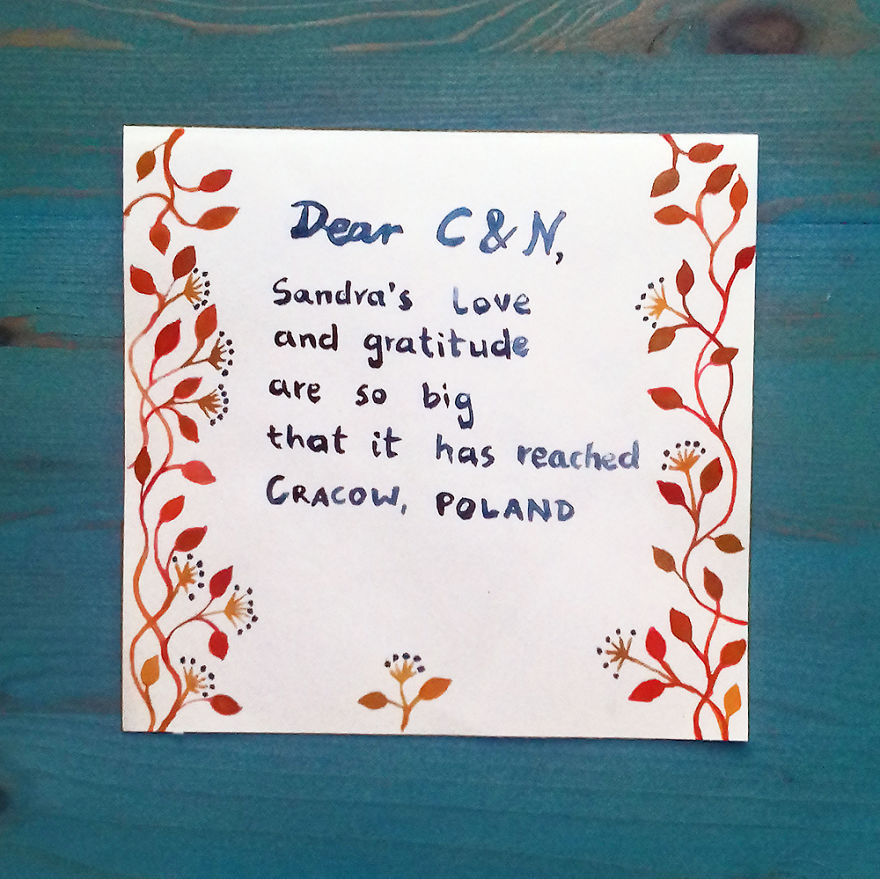 Dear C & N,
Sandra's love
and gratitude
are so big
that it has reached
CRACOW, POLAND